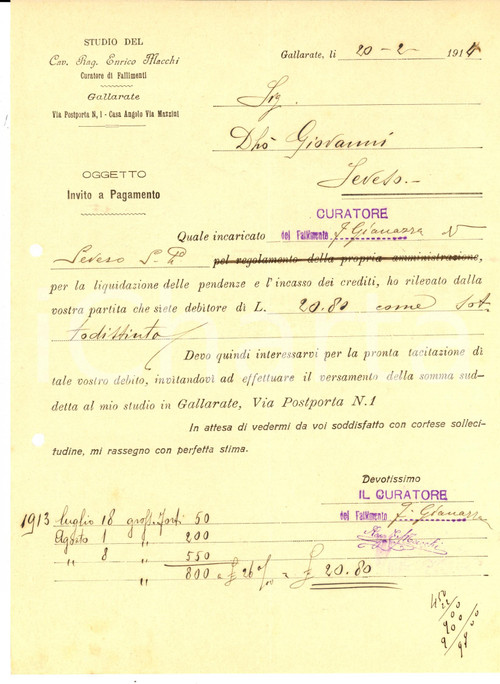 STUDIO DEL
Cav. Rag. Enrico Macchi
Curatore di Fallimenti
Gallarate
Via Postporta N, 1 - Casa Angolo Via Mazzini
Gallarate, li 20-2- 1914
Sig.
Dhò Giovanni
Seveso.-
OGGETTO
Invito a Pagamento
CURATORE
Quale incaricato del Fallimento J Gianazza
Seveso S. P. pel regolamento della propria amministrazione,
per la liquidazione delle pendenze e l'incasso dei crediti, ho rilevato dalla
vostra partita che siete debitore di L. 20.80 come sot-
todistinto
Devo quindi interessarvi per la pronta tacitazione di
tale vostro debito, invitandovi ad effettuare il versamento della somma sud-
detta al mio studio in Gallarate, Via Postporta N. 1
In attesa di vedermi da voi soddisfatto con cortese solleci-
tudine, mi rassegno con perfetta stima.
Devotissimo
IL CURATORE
del Fallimento J. Gianazza
1913 luglio 18 gross. Forti 50
Agosto 1 " 200
" 8 " 550
" 800 a £ 26 %00 = £ 20.80